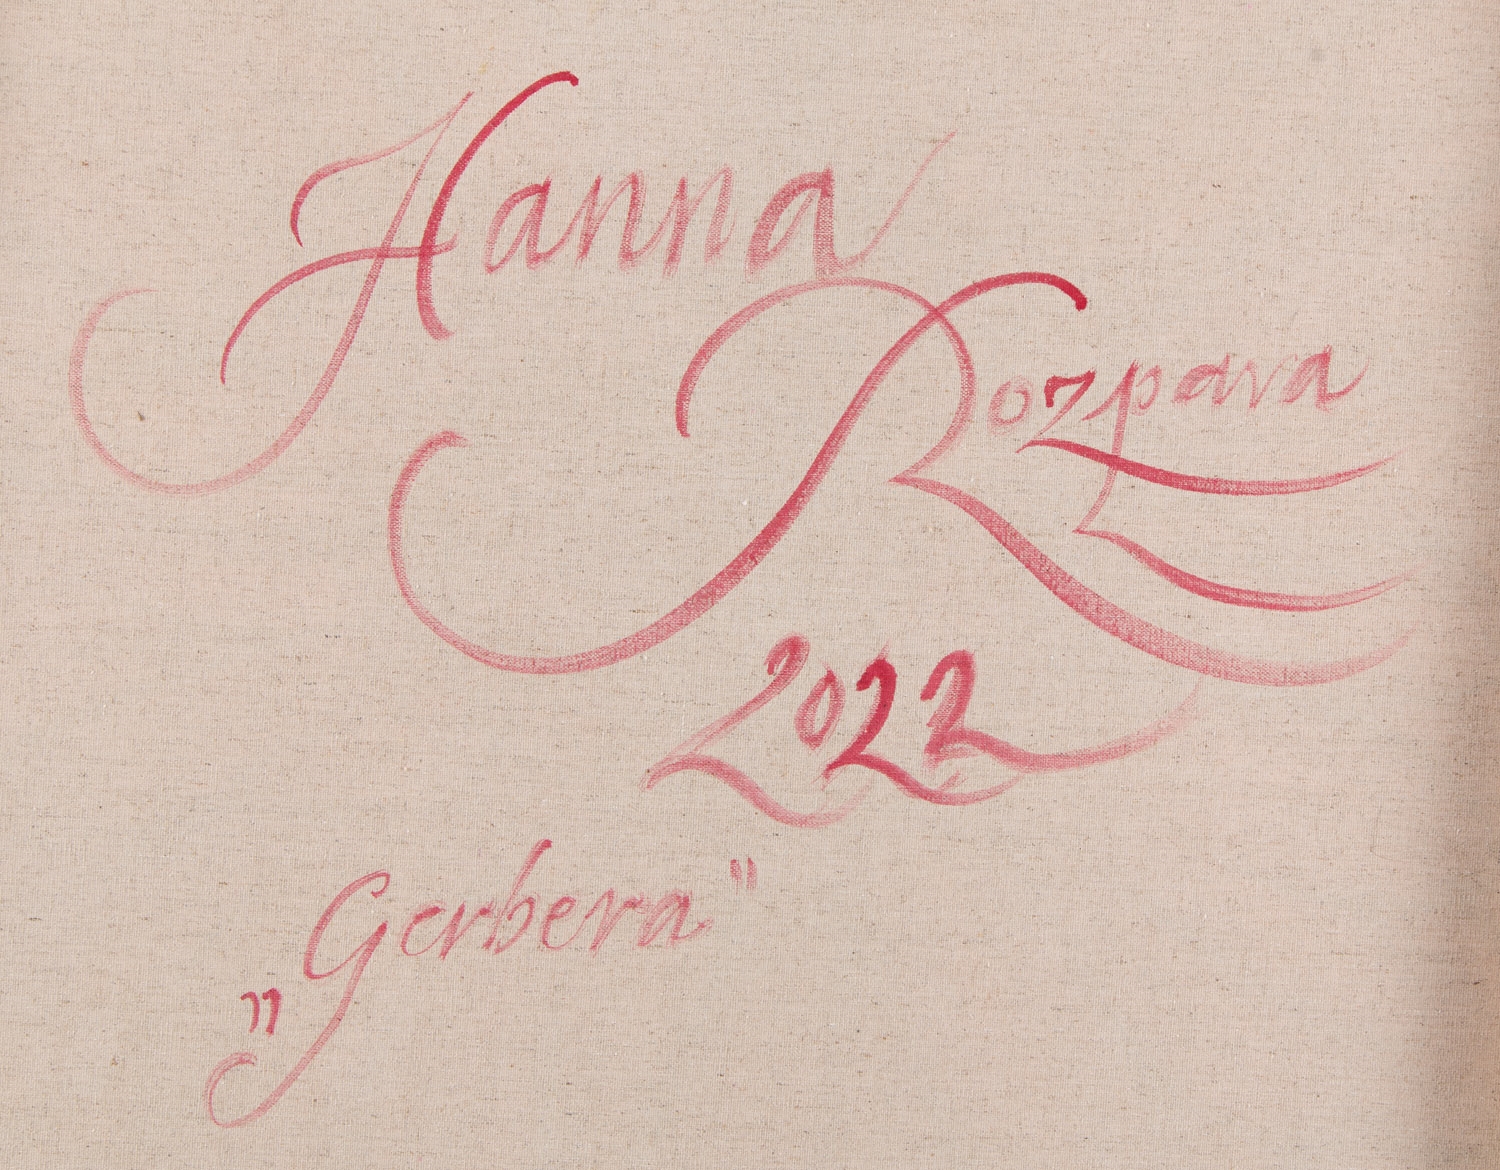 Hanna
Rozpara
2022
„Gerbera"